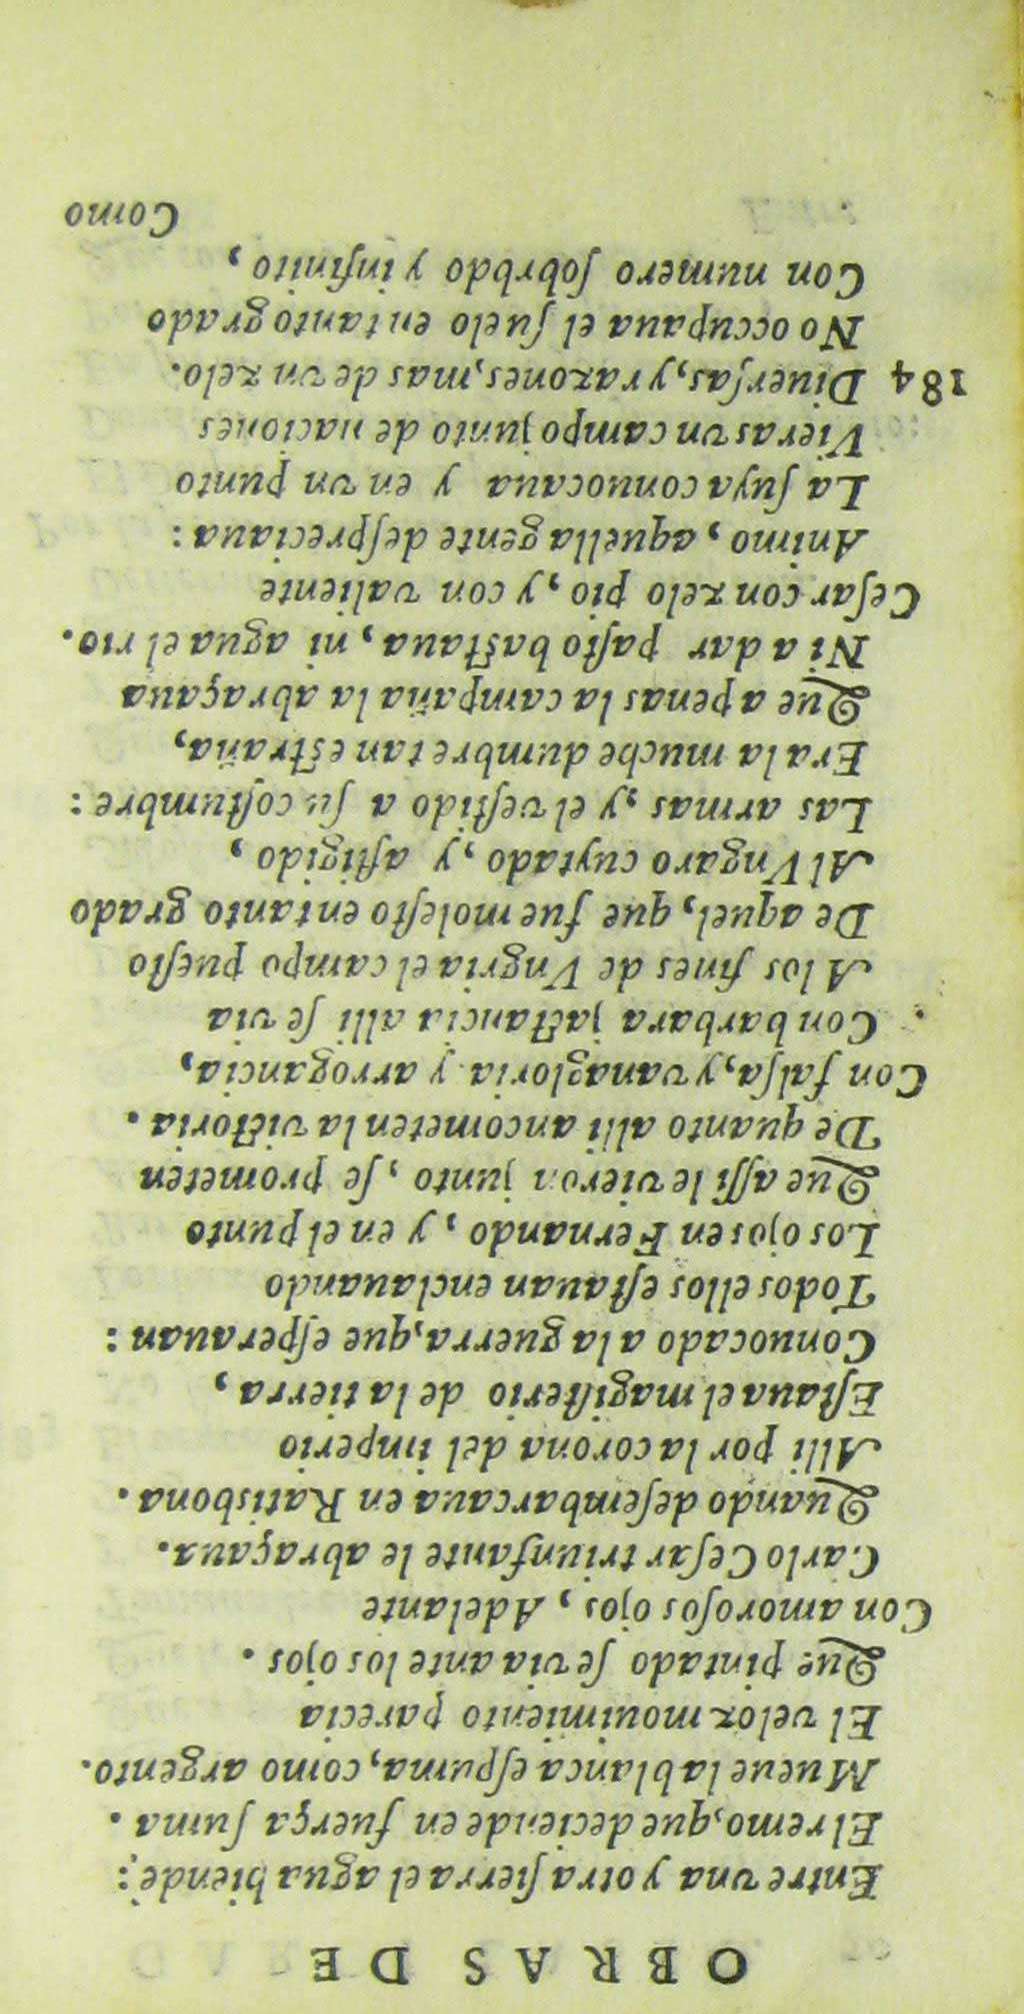 OBRAS DE
Entre vna y otra sierra el agua hiende:
El remo, que deciende en fuerça suma.
Mueue la blanca espuma, como argento.
El veloz mouimiento parecia
Que pintado se via ante los ojos.
Con amorosos ojos, Adelante
Carlo Cesar triunfante le abraçaua.
Quando desembarcaua en Ratisbona.
Alli por la corona del imperio
Estaua el magisterio de la tierra,
Conuocado a la guerra, que esperauan:
Todos ellos estauan enclauando
Los ojos en Fernando, y en el punto
Que assi le vieron junto, se prometen
De quanto alli ancometen la victoria.
Con falsa, y vanagloria y arrogancia,
Con barbara jactancia alli se via
A los fines de Vngria el campo puesto
De aquel, que fue molesto en tanto grado
Al Vngaro cuytado, y afligido,
Las armas, y el vestido a su costumbre:
Era la muchedumbre tan estraña,
Que apenas la campaña la abraçaua
Ni a dar pasto bastaua, ni agua el rio.
Cesar con zelo pio, y con valiente
Animo, aquella gente despreciaua:
La suya conuocaua y en vn punto
Vieras vn campo junto de naciones
184 Diuersas, y razones, mas de vn zelo.
No occupaua el suelo en tanto grado
Con numero sobrbdo y infinito,
Como